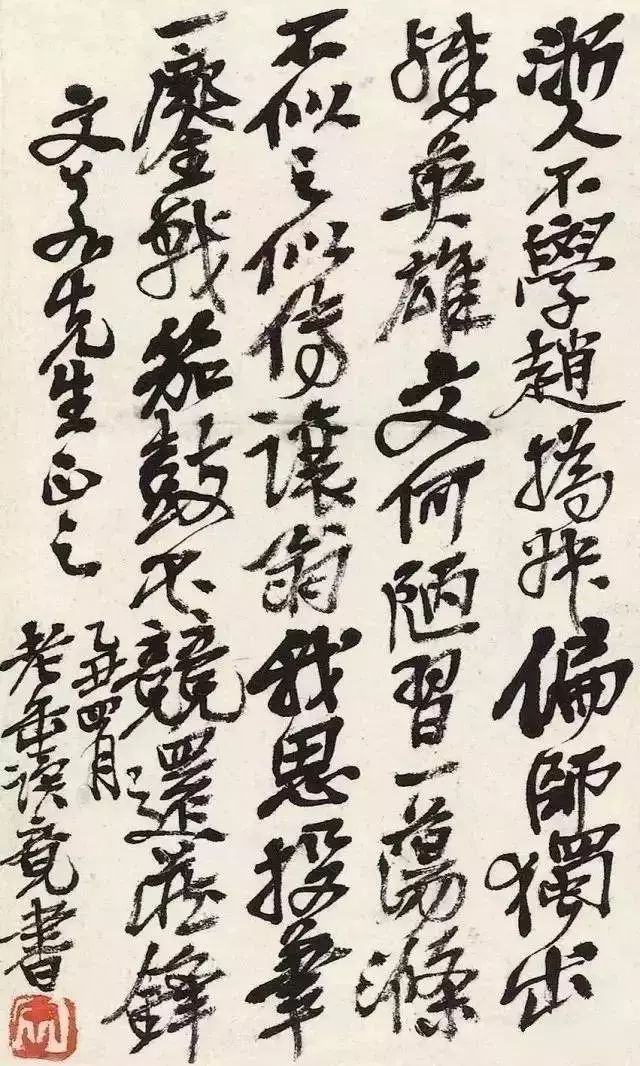 浙人不學趙撝叔偏師獨出
殊英雄文何陋習一蕩滌
不似之似傳讓翁我思投筆
一鏖戰笳鼓不競還藏鋒
文先生正之
乙丑四月
老書